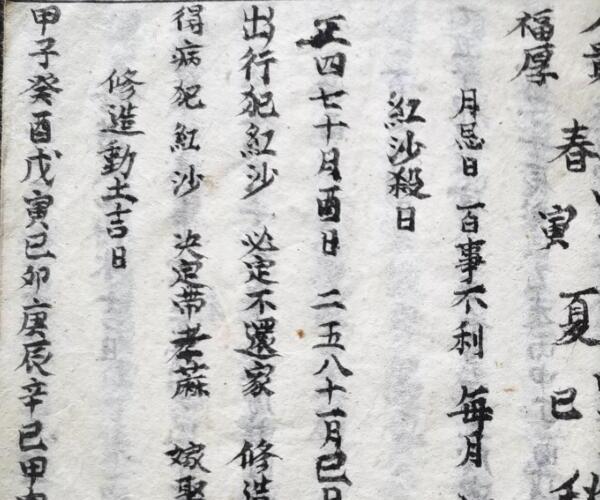 春 夏
寅 巳
福厚
月忌日 百事不利 每月
紅沙殺日
正四七十月酉日 二五八十一月巳日
出行犯紅沙 必定不還家 修造
得病犯紅沙 決定帶孝蔴 嫁娶
修造動土吉日
甲子癸酉戊寅己卯庚辰辛巳甲申